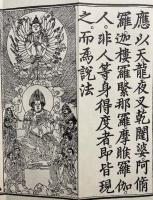 應以天龍夜叉乾闥婆阿脩
羅迦樓羅緊那羅摩睺羅伽
人非人等身得度者即皆現
之而為說法